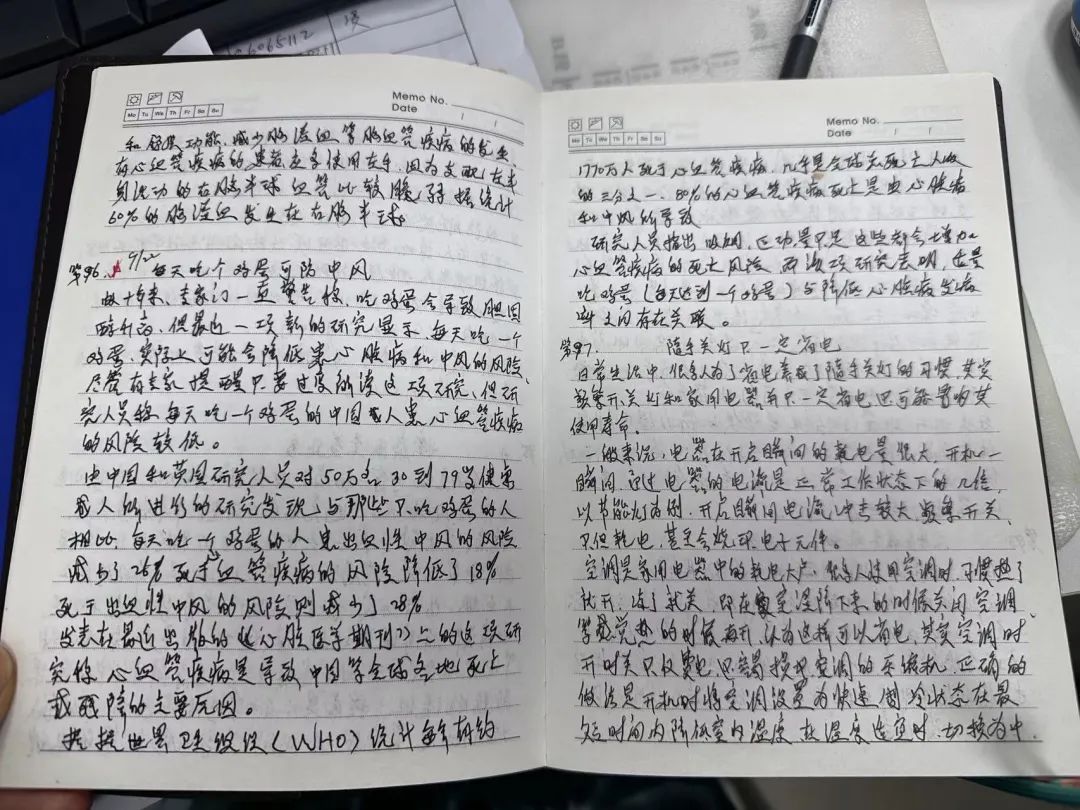 6065112
Memo No.
Date / /
Mo Tu We Th Fr Sa Su
和 功能,减少脑溢血等脑血管疾病的发生
有心血管疾病的患者应多使用左手,因为支配左半
身活动的右脑半球血管比较脆弱 据统计
60%的脑溢血发生在右脑半球
第96. 9/22 每天吃个鸡蛋可防中风
数十年来,专家门一直警告称,吃鸡蛋会导致胆固
醇升高,但最近一项新的研究显示,每天吃一个
鸡蛋,实际上可能会降低患心脏病和中风的风险
尽管有专家提醒只要过度解读这项研究,但研
究人员称每天吃一个鸡蛋的中国人患心血管疾病
的风险较低。
由中国和英国研究人员对50万名30到79岁健康
成人所进行的研究发现,与那些只吃鸡蛋的人
相比,每天吃一个鸡蛋的人患出血性中风的风险
减少了26% 死于血管疾病的风险降低了18%
死于出血性中风的风险则减少了28%
发表在最近出版的《心脏医学期刊》上的这项研
究称 心血管疾病是导致中国等全球各地死亡
或残障的主要原因。
据 世界卫生组织(WHO)统计每年有约
Memo No.
Date / /
Mo Tu We Th Fr Sa Su
1770万人死于心血管疾病,几乎是全球死亡人数
的三分之一,80%的心血管疾病死亡是由心脏病
和中风所导致
研究人员指出吸烟,运动量不足这些都会增加
心血管疾病的死亡风险 而该项研究表明,适量
吃鸡蛋(每天达到一个鸡蛋)与降低心脏病发病
率之间存在关联。
第97. 随手关灯不一定省电
日常生活中,很多人为了省电养成了随手关灯的习惯,其实
频繁开、关灯和家用电器并不一定省电还可能影响其
使用寿命.
一般来说,电器在开启瞬间的耗电量很大,开机一
瞬间,通过电器的电流是正常工作状态下的几倍,
以节能灯为例,开启瞬间电流冲击较大 频繁开关、
不但耗电,甚至会烧坏电子元件。
空调是家用电器中的耗电大户,很多人使用空调时习惯热了
就开,凉了就关,即在室温降下来的时候关闭空调
等感觉热的时候再开,认为这样可以省电,其实空调时
开时关不仅费电,还容易损坏空调的压缩机,正确的
做法是开机时将空调设置为快速制冷状态在最
短时间内降低室内温度 在温度适宜时,切换为中